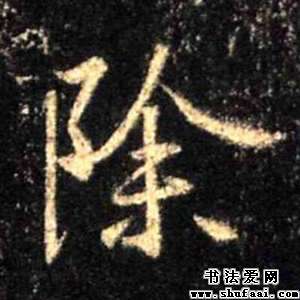 除
书法爱网
www.shufaai.com